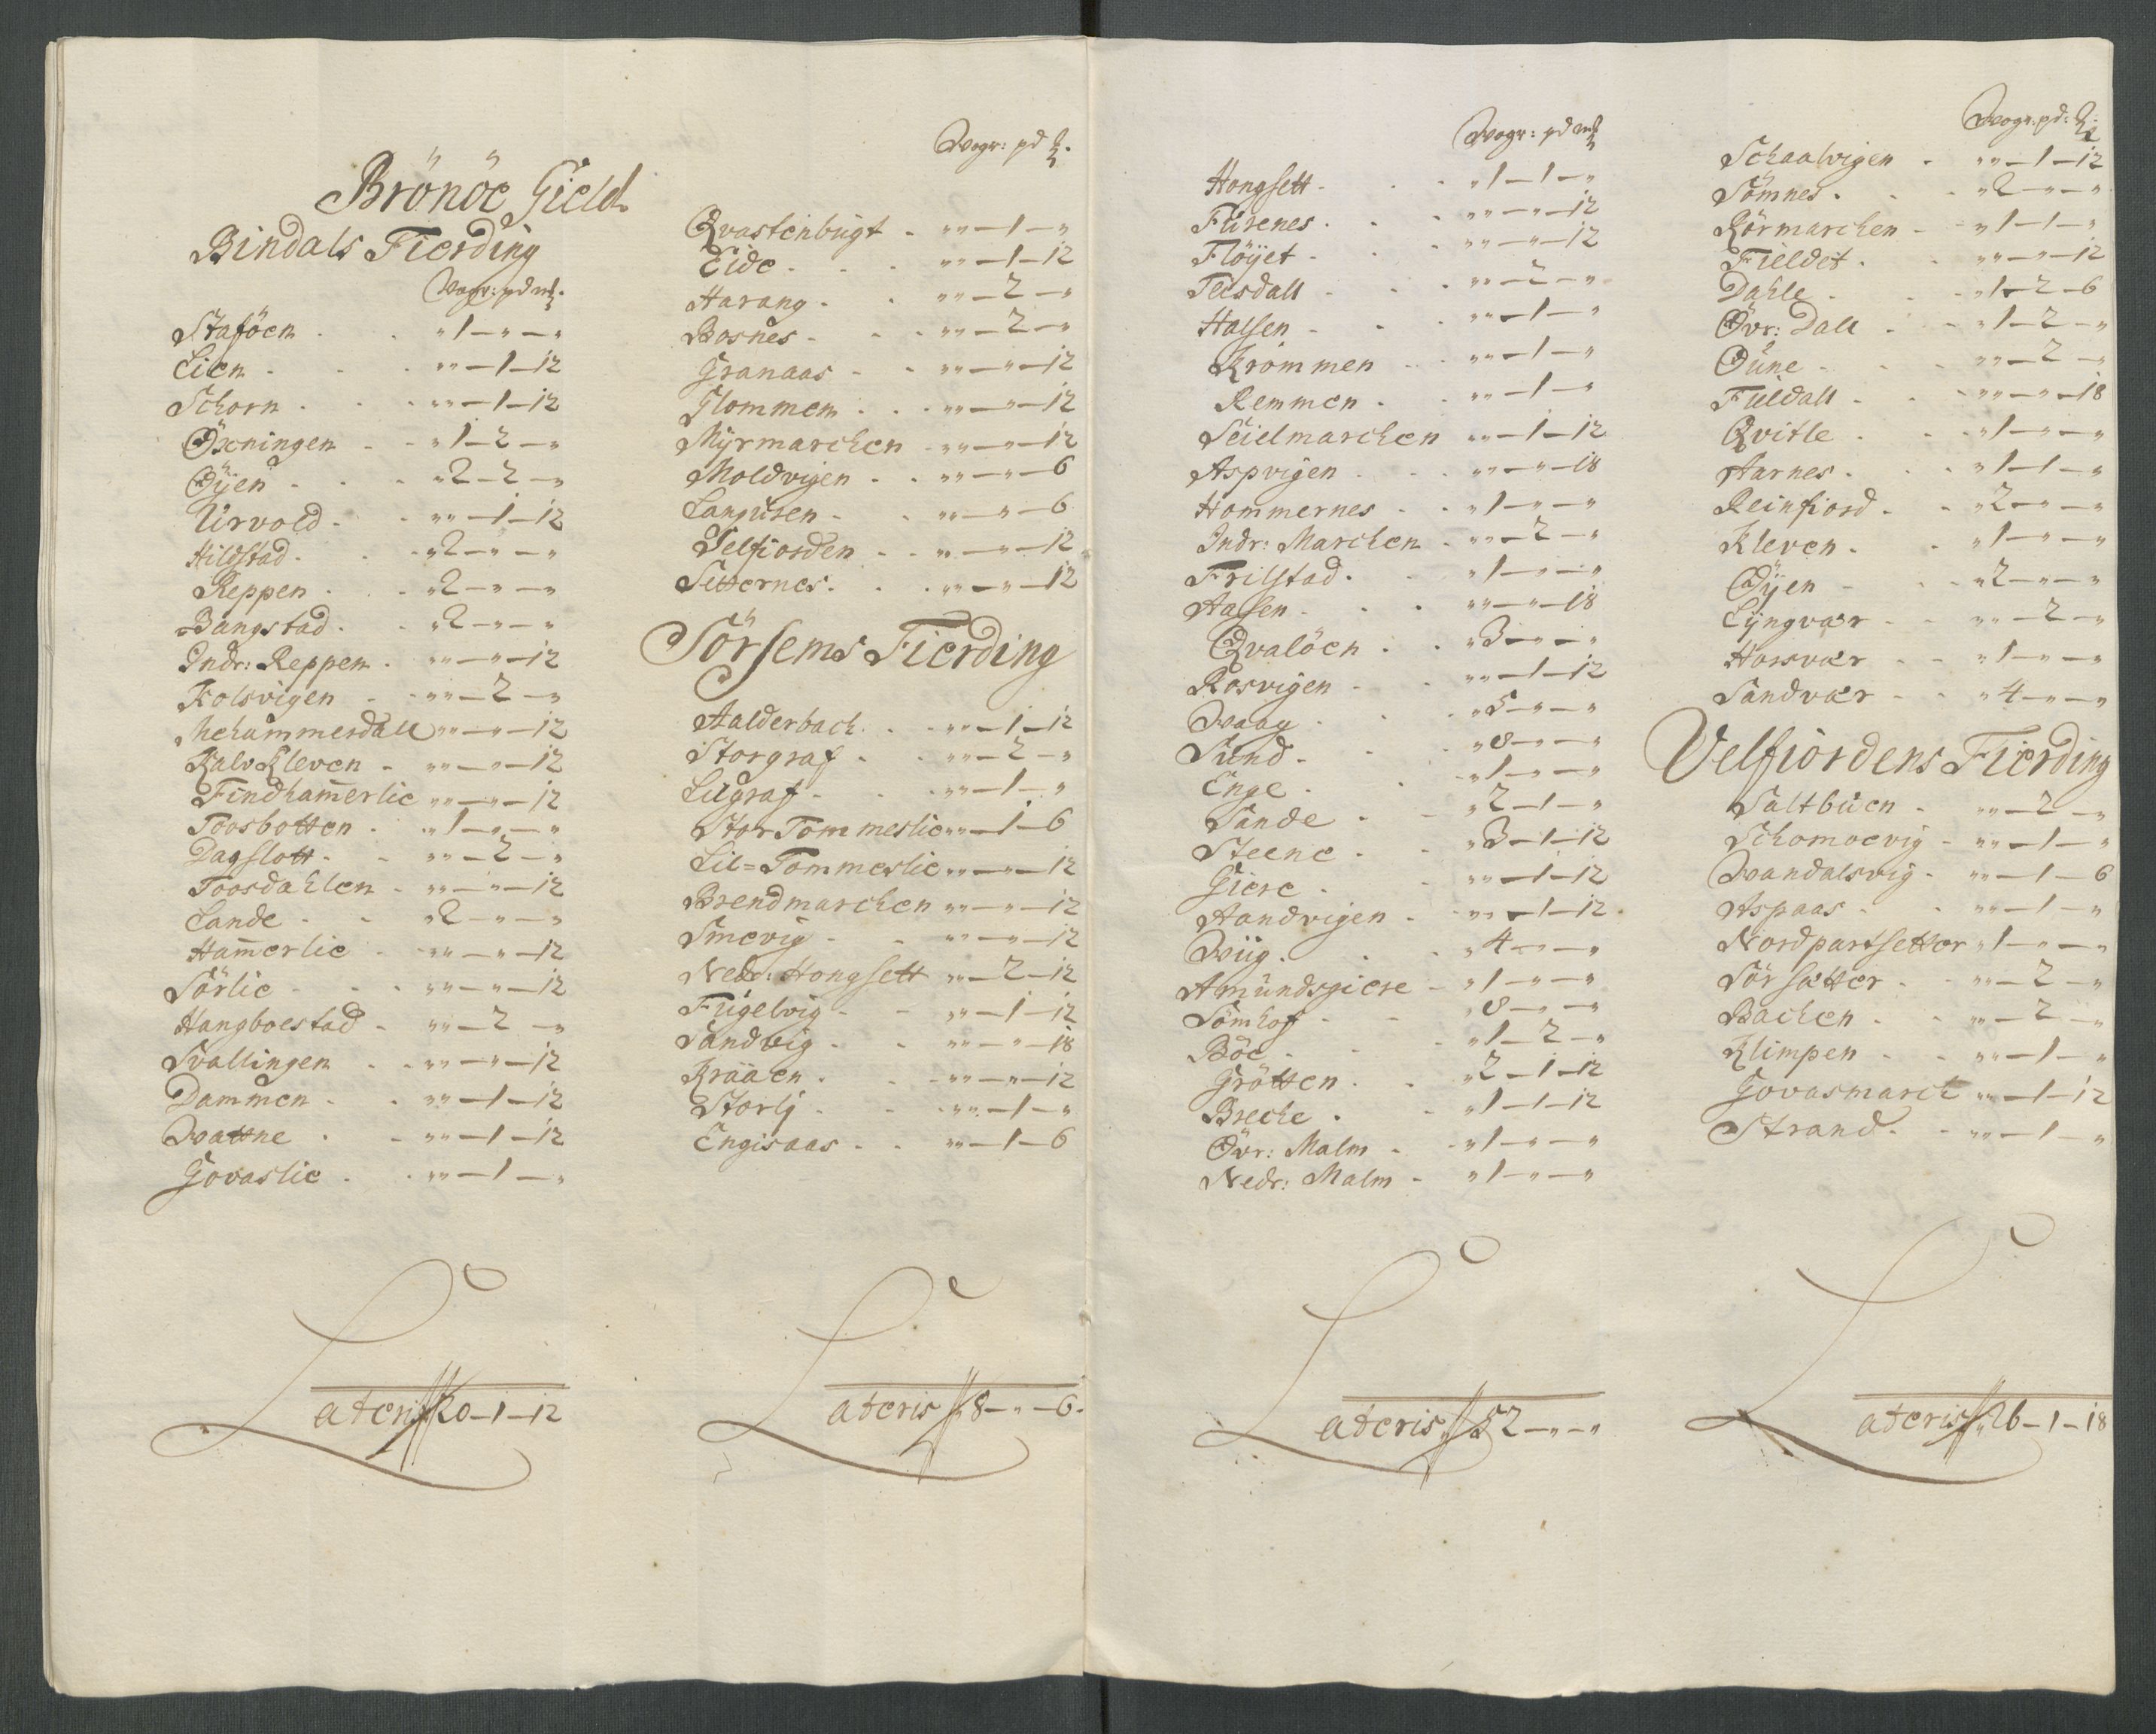 Brönöe Gield
Bindals Fierding
Wogr: pd mk.
Staföen . . „ 1 — „ — „
Lien . . . „„ — 1 — 12
Schorn . . . „„ — 1 — 12
Øxningen . . „ 1 — 2 — „
Øyen . . . „ 2 — 2 — „
Urvold . . „„ — 1 — 12
Hildstad . . . „ 2 — „ — „
Reppen . . „ 2 — „ — „
Bangstad . . „ 2 — „ — „
Indr: Reppen . „„ — „ — 12
Kolsvigen . . „„ — 2 — „
Mehammerdall „„ — „ — 12
KalvKleven . „„ — „ — 12
Findham̄erlie „„ — „ — 12
Toosbotten . „ 1 — „ — „
Dagslott . . „„ — 2 — „
Toosdahlen . „„ — „ — 12
Lande . . „ 2 — „ — „
Ham̄erlie . „„ — „ — 12
Sörlie . . . „„ — „ — 12
Hangboestad . „„ — 2 — „
Svallingen . . „„ — „ — 12
Dammen . . „„ — 1 — 12
Wattne . . „„ — 1 — 12
Govaslie . . „„ — 1 — „
Lateris 20 — 1 — 12
Wogr: pd
Qvastenbugt . „„ — 1 — „
Eide . . . „„ — 1 — 12
Harang . . „„ — 2 — „
Bosnes . . . „„ — 2 — „
Granaas . . „„ — „ — 12
Flommen . . . „„ — „ — 12
Myrmarchen . „„ — „ — 12
Moldvigen . . „„ — „ — 6
Langusen . . „„ — „ — 6
Selfiorden . . „„ — „ — 12
Setternes . . . „„ — „ — 12
Sörsems Fierding
Aalderbach . . „„ — 1 — 12
Storgraf . . „„ — 2 — „
Lilgraf . . . „„ — 1 — „
Stor Tommerlie „„ — 1 — 6
Lil=Tommerlie „„ — „ — 12
Brendmarchen „„ — „ — 12
Smevig . . „„ — „ — 12
Nedr: Hongsett „„ — 2 — 12
Fugelvig . . „„ — 1 — 12
Sandvig . . „„ — „ — 18
Kraaen . . . „„ — „ — 12
Storlj . . . „„ — 1 — „
Engisaas . . „„ — 1 — 6
Lateris 8 — „ — 6.
Wogr: pd mk
Hongsett . . . „ 1 — 1 — „
Furenes . . . „„ — „ — 12
Flöyet . . . „„ — „ — 12
Teisdall . . . „„ — 2 — „
Halsen . . . „„ — 1 — „
Krommen . . „„ — 1 — „
Remmen . . „„ — 1 — „
Seielmarchen „„ — 1 — 12
Aspvigen . . . „„ — „ — 18
Hommernes . . „ 1 — „ — „
Indr: Marchen . „„ — 2 — „
Frilstad . . „ 1 — „ — „
Aasen . . . „„ — „ — 18
Qvalöen . . „ 3 — „ — „
Rosvigen . . „„ — 1 — 12
Waag . . . „ 5 — „ — „
Sund . . . „ 8 — „ — „
Enge . . . „ 1 — „ — „
Sande . . „ 2 — 1 — „
Steene . . „ 3 — 1 — 12
Giere . . „„ — 1 — 12
Aandvigen . . „„ — 1 — 12
Wiig . . . „ 4 — „ — „
Amundsgiere . „ 1 — „ — „
Sömhof . . „ 8 — „ — „
Böe . . . „ 1 — 2 — „
Grötten . . „ 2 — 1 — 12
Breche . . „ 1 — 1 — 12
Øvr: Malm . . „ 1 — „ — „
Nedr: Malm . „ 1 — „ — „
Lateris 52 — „ — „
Wogr: pd:
Schaalvigen . „„ — 1 — 12
Sömnes . . . „ 2 — „ — „
Rörmarchen . „ 1 — 1 — „
Fieldet . . „„ — „ — 12
Dahle . . . „ 1 — 2 — 6
Øvr: Dall . . „ 1 — 2 — „
Øune . . . „„ — 2 — „
Fuldall . . „„ — „ — 18
Qvitle . . . „ 1 — „ — „
Harnes . . . „ 1 — 1 — „
Reinfiord . . „ 2 — „ — „
Kleven . . „ 1 — „ — „
Øyen . . . „ 2 — „ — „
Lyngvær . . „„ — 2 — „
Horsvær . . „ 1 — „ — „
Sandvær . . „ 4 — „ — „
Velfiordens Fierding
Saltbuen . „„ — 2 — „
Schomoevig . „„ — 1 — „
Wandalsvig . „„ — 1 — 6
Aspaas . . „„ — 1 — „
Nordpartsetter „ 1 — „ — „
Sörsætter . . „„ — 2 — „
Bachen . . „„ — 2 — „
Klimpen . . „„ — 1 — „
Govasmarch „„ — 1 — 12
Strand . . „„ — 1 — „
Lateris 26 — 1 — 18